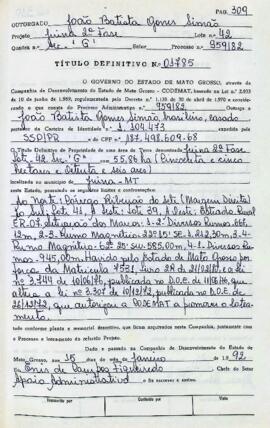 Pag. 309
Outorgado João Batista Gomes Simão
Projeto Juína 2ª Fase Lote 42
Quadra n.º Sec. "G" Processo n.º 959182
TÍTULO DEFINITIVO N.º 01785
O GOVERNO DO ESTADO DE MATO GROSSO, através da
Companhia de Desenvolvimento do Estado de Mato Grosso - CODEMAT, baseado na Lei n.º 2.033
de 10 de junho de 1.969, regulamentada pelo Decreto n.º 1.138 de 30 de abril de 1.970 e conside-
rando o que consta do Processo Administrativo n.º 959182 Outorga a
João Batista Gomes Simão brasileiro, casado
portador da Carteira de Identidade n.º 1.104.473
SSP/PR e do CPF n.º 187.498.609-68
O Título Definitivo de Propriedade de uma área de Terra denominada Juína 2ª Fase
Lote 42 Sec. "G" com 55,86 ha (Cinquenta e cinco
hectares e oitenta e seis ares)
localizada no município de Juína-MT
neste Estado, possuindo os seguintes limites e confrontações:
Ao Norte: Córrego Ribeirão do Sete (Margem Direita)
Ao Sul: Lote 41, A Oeste: Lote 39, A Leste: Estrada Rural
ER-07.
Rumo Magnético: 62º25'SW-585,00m, 4-1. Diversos Ru-
mos-945,00m. Havido pelo Estado de Mato Grosso por
força da Matrícula 7531, livro 2
3.744 de 10/06/76, publicado no D.O.E. de 11/06/76, que
altera a lei nº 3.307 de 18/12/72, publicado no D.O.E. de
que autorizou a CODEMAT a promover o lotea-
mento.
tudo conforme planta e memorial descritivo, que ficam arquivados nesta Companhia, juntamente com
o Processo e interesse do referido Projeto.
Dado e passado na Companhia de Desenvolvimento do Estado de
Mato Grosso, aos 15 dias do mês de Janeiro de 1.992
Eu Enis de Campos Figueiredo Chefe do Setor
Apoio Administrativo o fiz escrever e assino.
Transcrito por Conferido por Visto